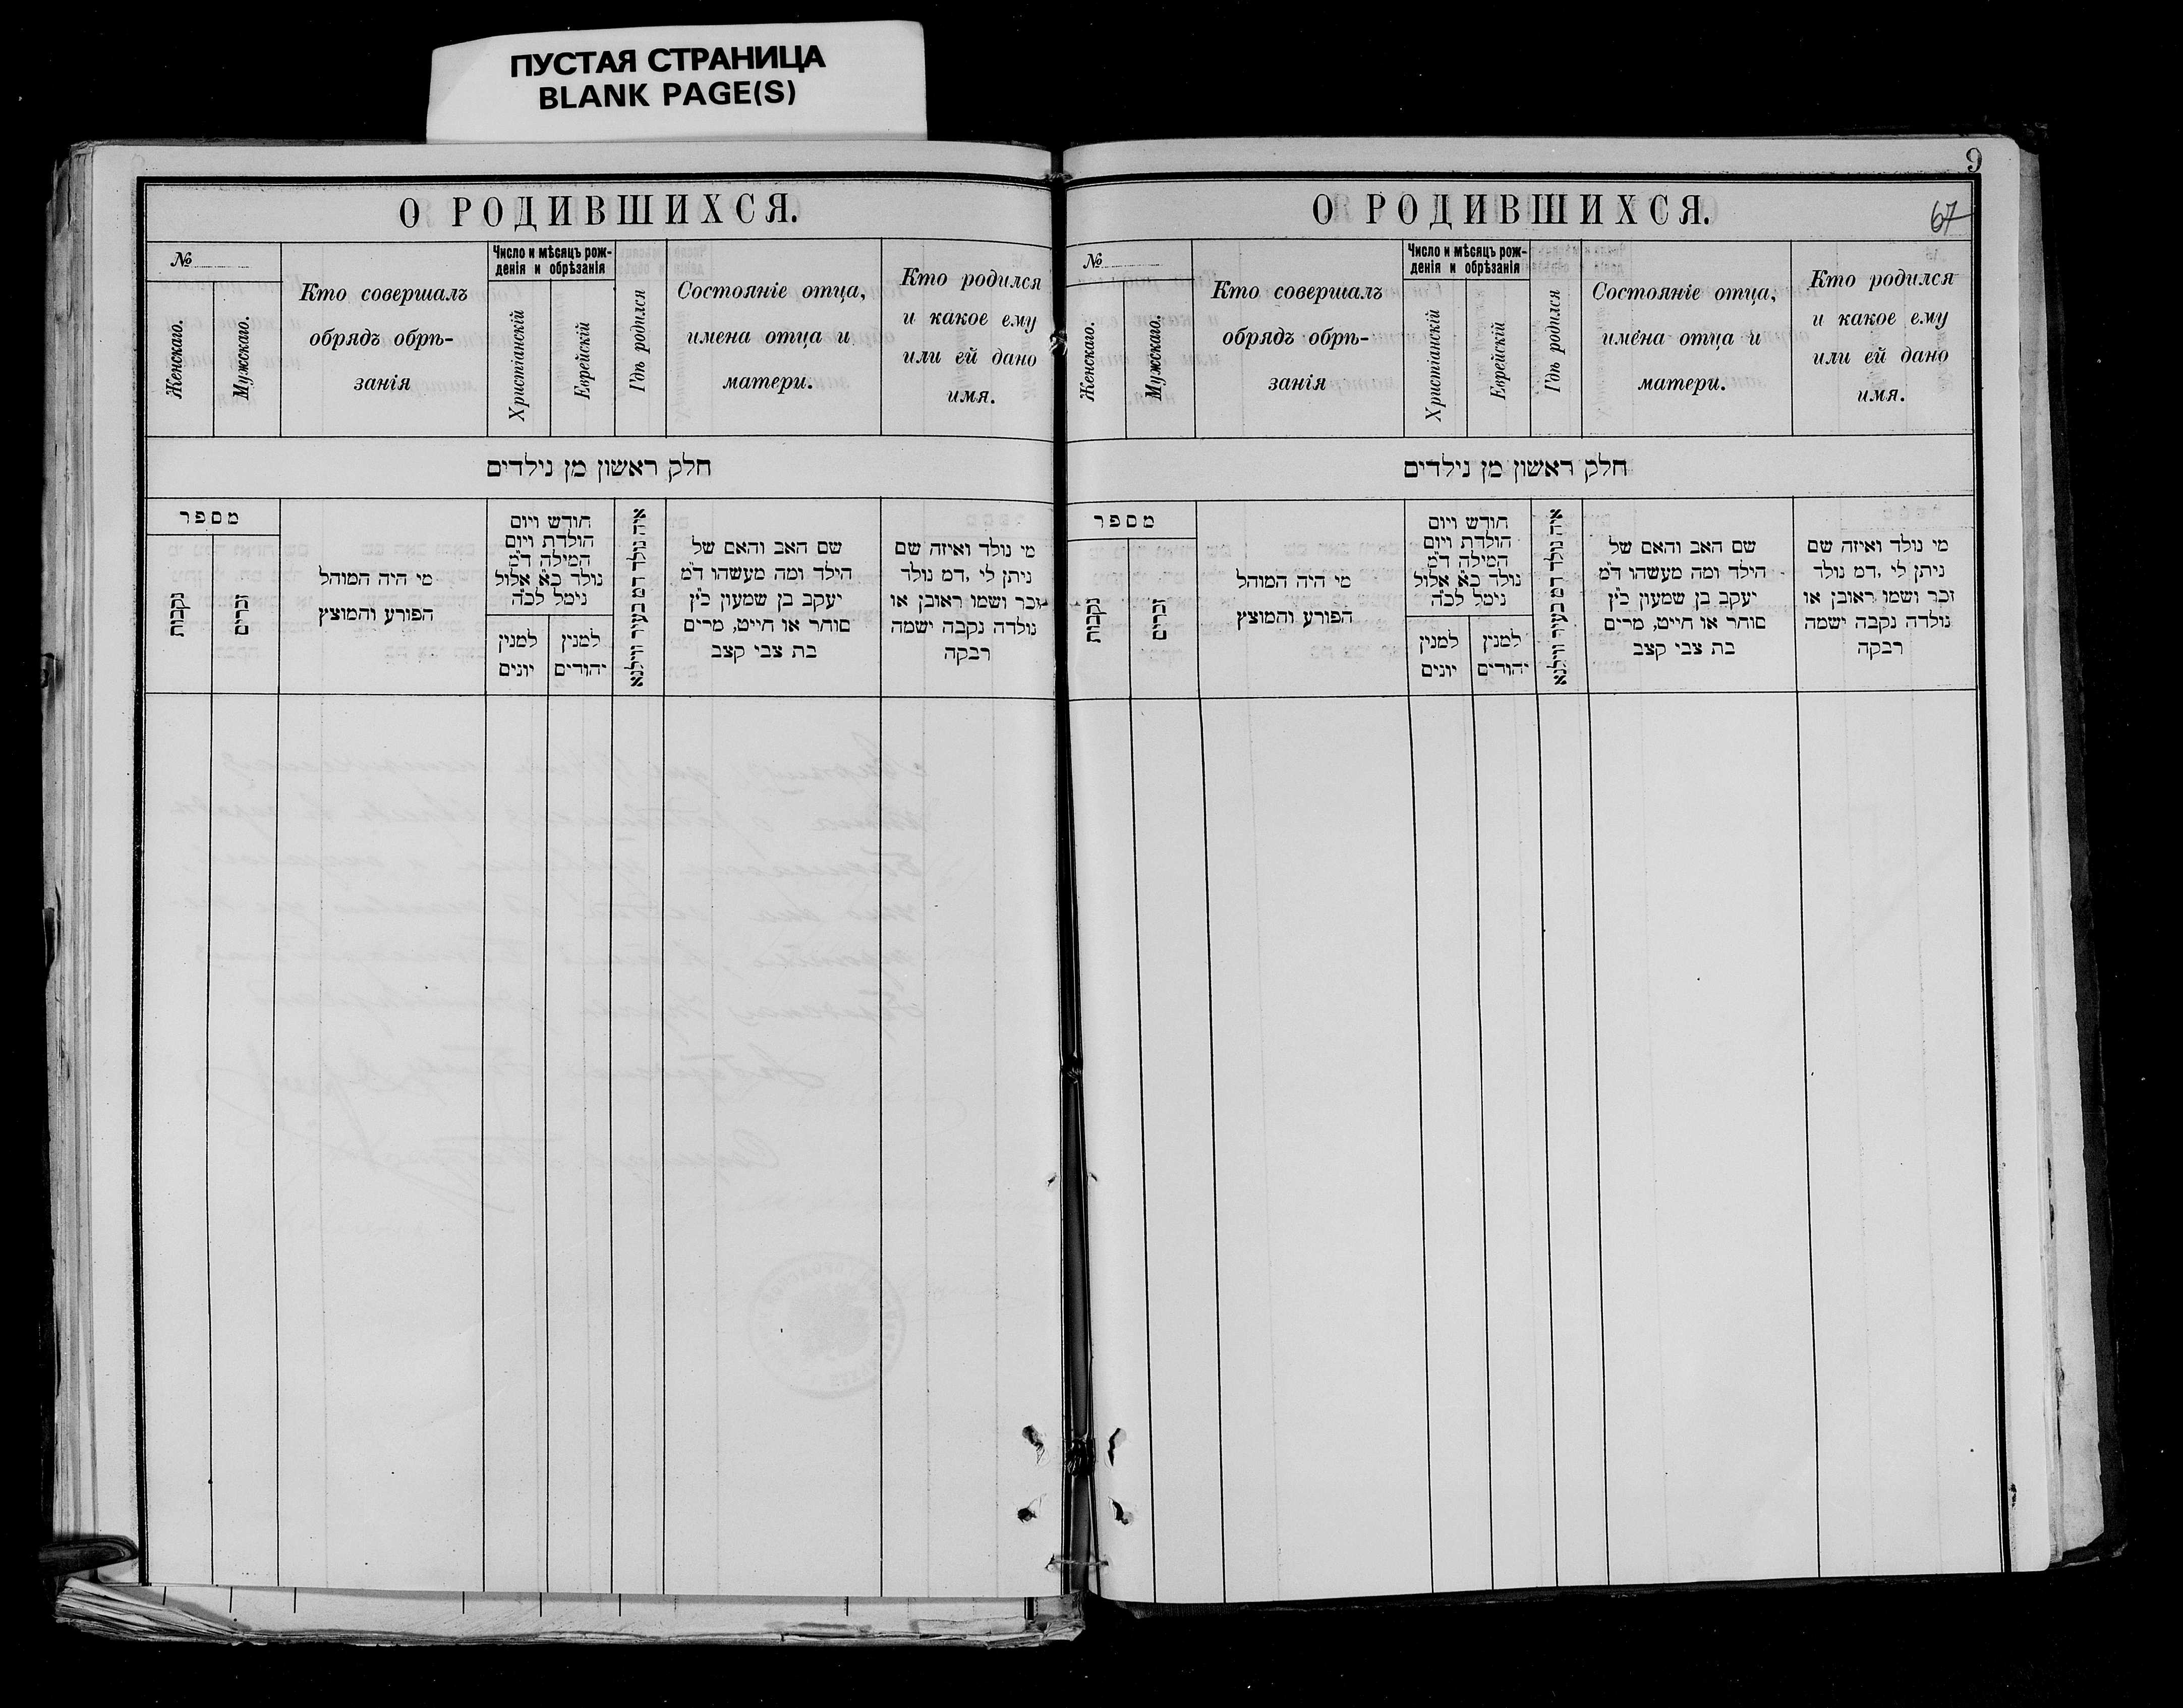 ПУСТАЯ СТРАНИЦА
BLANK PAGE(S)
О РОДИВШИХСЯ.
№
Женскаго.
Мужскаго.
Кто совершалъ
обрядъ обрѣ-
занія
Число и мѣсяцъ рож-
денія и обрѣзанія
Христіанскій
Еврейскій
Гдѣ родился
Состояніе отца,
имена отца и
матери.
Кто родился
и какое ему
или ей дано
имя.
חלק ראשון מן נילדים
מספר
נקבות
זכרים
מי היה המוהל
הפורע והמוצץ
חודש ויום
הולדת ויום
המילה ד״מ
נולד כ״א אלול
נימל לכ״ה
למנין
יונים
למנין
יהודים
איה נולד דמ בעיר ווילנא
שם האב והאם של
הילד ומה מעשהו ד״מ
יעקב בן שמעון כ״ץ
סוחר או חייט, מרים
בת צבי קצב
מי נולד ואיזה שם
ניתן לי, דמ נולד
זכר ושמו ראובן או
נולדה נקבה ישמה
רבקה
9
О РОДИВШИХСЯ.
67
№
Женскаго.
Мужскаго.
Кто совершалъ
обрядъ обрѣ-
занія
Число и мѣсяцъ рож-
денія и обрѣзанія
Христіанскій
Еврейскій
Гдѣ родился
Состояніе отца,
имена отца и
матери.
Кто родился
и какое ему
или ей дано
имя.
חלק ראשון מן נילדים
מספר
נקבות
זכרים
מי היה המוהל
הפורע והמוצץ
חודש ויום
הולדת ויום
המילה ד״מ
נולד כ״א אלול
נימל לכ״ה
למנין
יונים
למנין
יהודים
איה נולד דמ בעיר ווילנא
שם האב והאם של
הילד ומה מעשהו ד״מ
יעקב בן שמעון כ״ץ
סוחר או חייט, מרים
בת צבי קצב
מי נולד ואיזה שם
ניתן לי, דמ נולד
זכר ושמו ראובן או
נולדה נקבה ישמה
רבקה